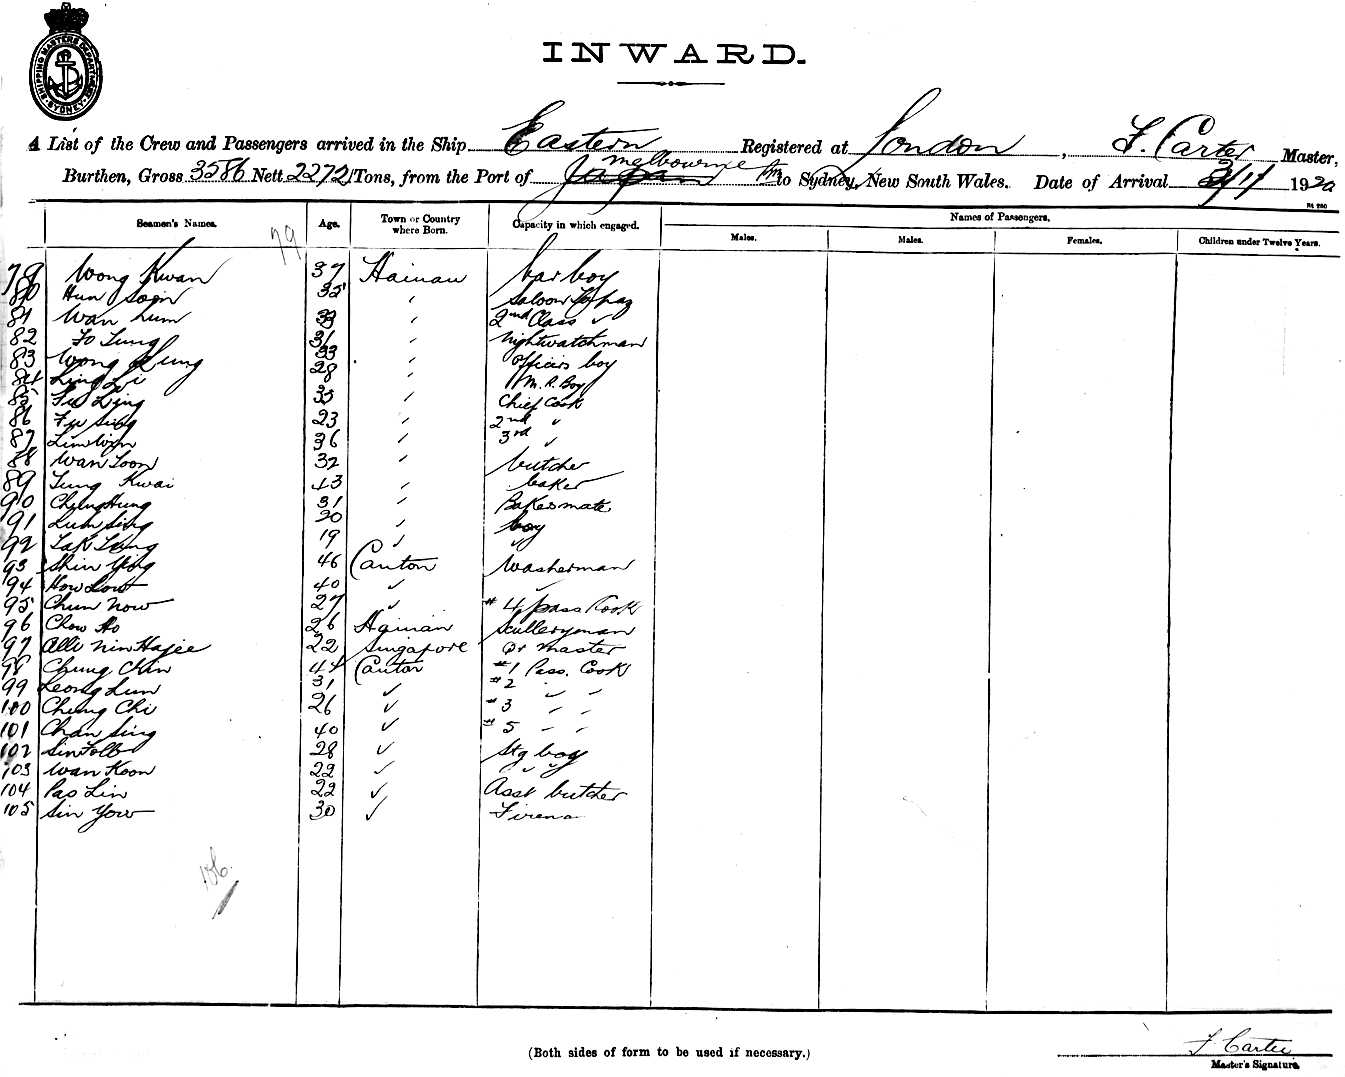 SHIPPING MASTERS DEPARTMENT SYDNEY
INWARD.
A List of the Crew and Passengers arrived in the Ship Eastern Registered at London, F. Carter Master,
Burthen, Gross 3586 Nett 2272 Tons, from the Port of Japan Melbourne to Sydney, New South Wales. Date of Arrival 2/11 1920
Seamen's Names. Age. Town or Country where Born. Capacity in which engaged. Names of Passengers.
Males. Males. Females. Children under Twelve Years.
79
79 Wong Kwan 37 Hainan bar boy
80 Hun Soon 35 " Saloon
81 Wan Lum 33 " 2nd Class "
82 Fo Tung 36 " nightwatchman
83 Wong Kung 33 " Officers boy
84 Ling Li 28 " M. R. Boy
85 Fu Ling 35 " Chief Cook
86 Fu Sing 23 " 2nd "
87 Lim Wan 36 " 3rd "
88 Wan Loon 32 " butcher
89 Tung Kwai 43 " baker
90 Cheng Hung 31 " Bakers mate
91 Lum Sing 20 " boy
92 Tak Lung 19 " "
93 Shin Ying 46 Canton Washerman
94 How Low 40 " "
95 Chun Now 27 " # 4 pass Cook
96 Chow Ho 26 Hainan Sculleryman
97 Alli Nin Hajee 22 Singapore Qr master
98 Chung Chin 44 Canton # 1 Pass. Cook
99 Leong Lum 31 " # 2 " "
100 Cheng Chi 26 " # 3 " "
101 Chan Sing 40 " # 5 " "
102 Sin 28 " Stg boy
103 Wan Koon 22 " " "
104 Pao Lin 22 " Asst butcher
105 Sin Yow 30 " Fireman
106.
(Both sides of form to be used if necessary.)
F Carter
Master's Signature.